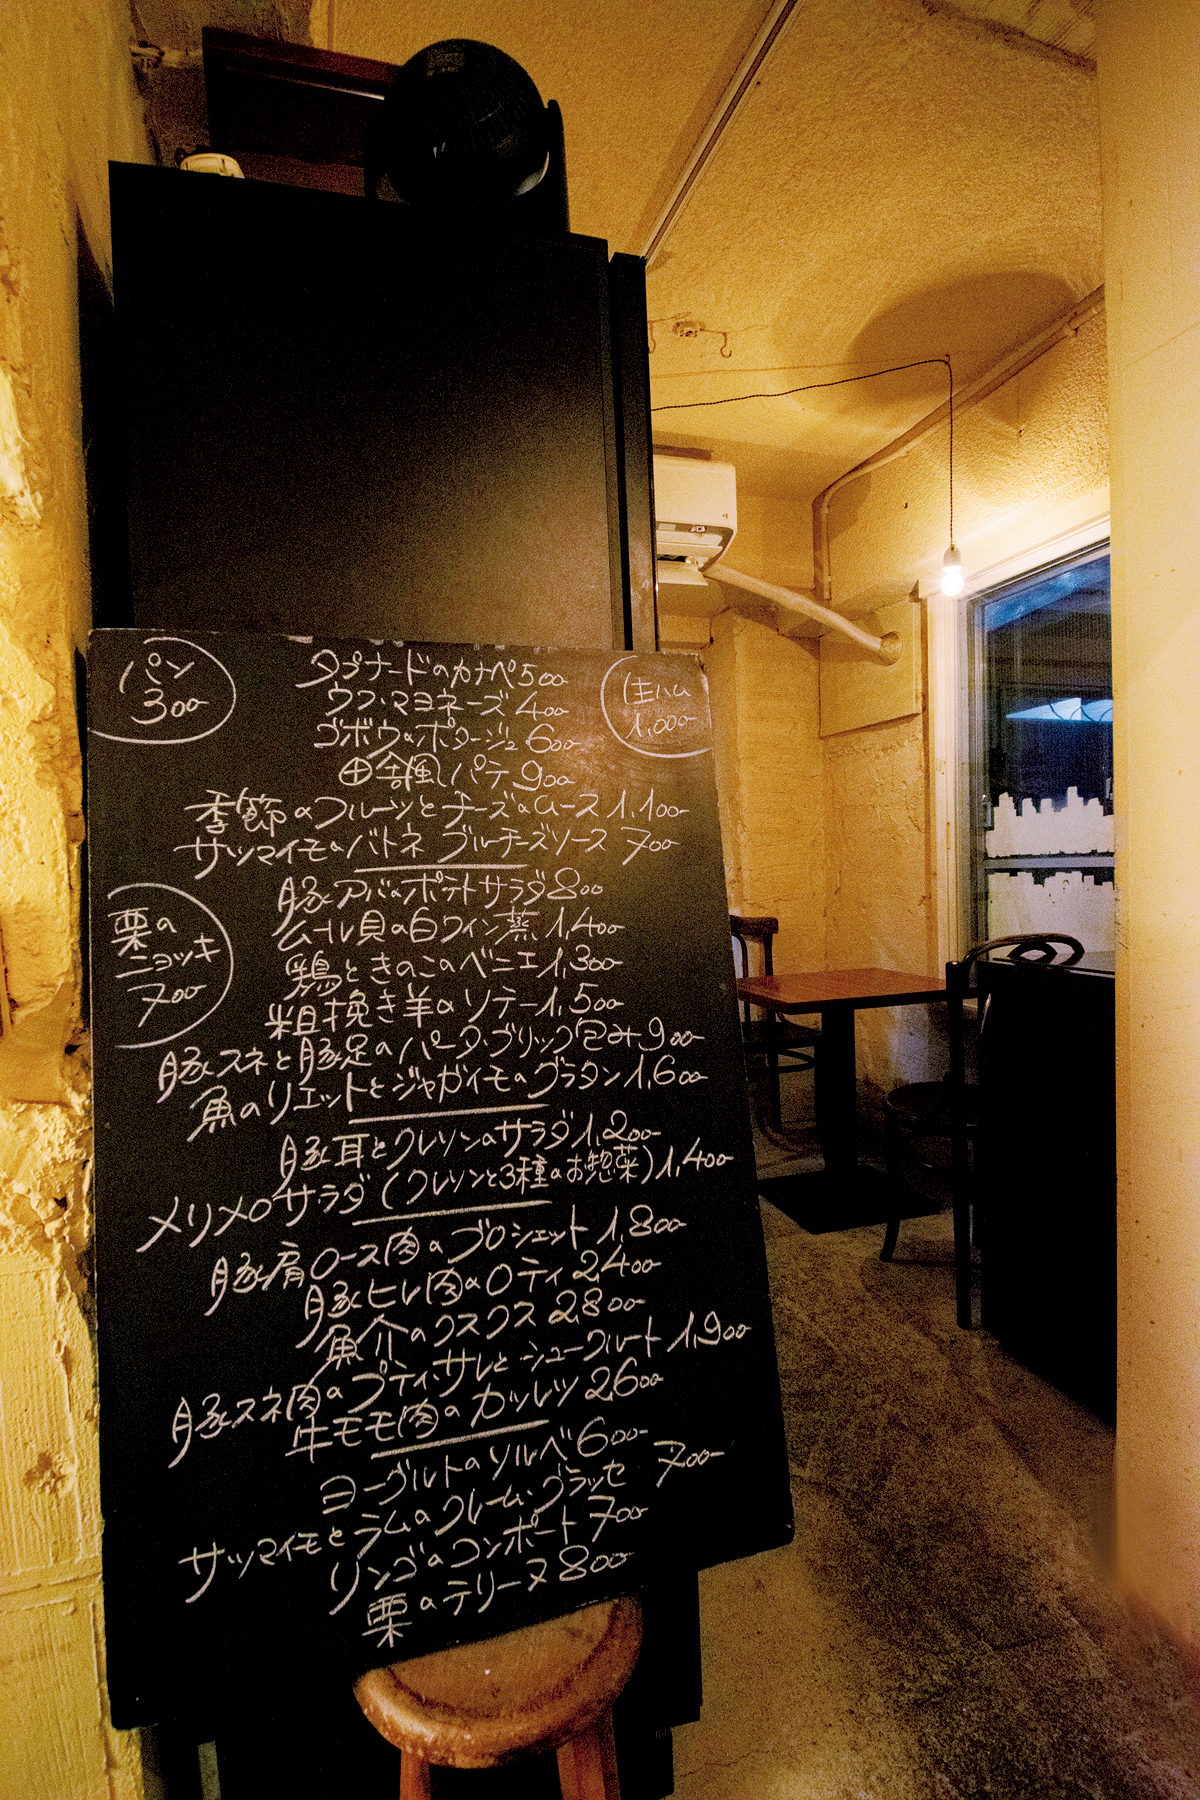 パン
300
タプナードのカナペ 500
ウフ・マヨネーズ 400
ゴボウのポタージュ 600
田舎風パテ 900
生ハム
1,000
季節のフルーツとチーズのムース 1,100
サツマイモのバトネ ブルーチーズソース 700
豚アバのポテトサラダ 800
ムール貝の白ワイン蒸 1,400
栗の
ニョッキ
700
鶏ときのこのベニエ 1,300
粗挽き羊のソテー 1,500
豚スネと豚足のパータ・ブリック包み 900
魚のリエットとジャガイモのグラタン 1,600
豚耳とクレソンのサラダ 1,200
メリメロサラダ (クレソンと3種のお惣菜) 1,400
豚肩ロース肉のブロシェット 1,800
豚ヒレ肉のロティ 2,400
魚介のクスクス 2,800
豚スネ肉のプティ・サレとシュークルート 1,900
牛モモ肉のカツレツ 2,600
ヨーグルトのソルベ 600
サツマイモとラムのクレーム・グラッセ 700
リンゴのコンポート 700
栗のテリーヌ 800